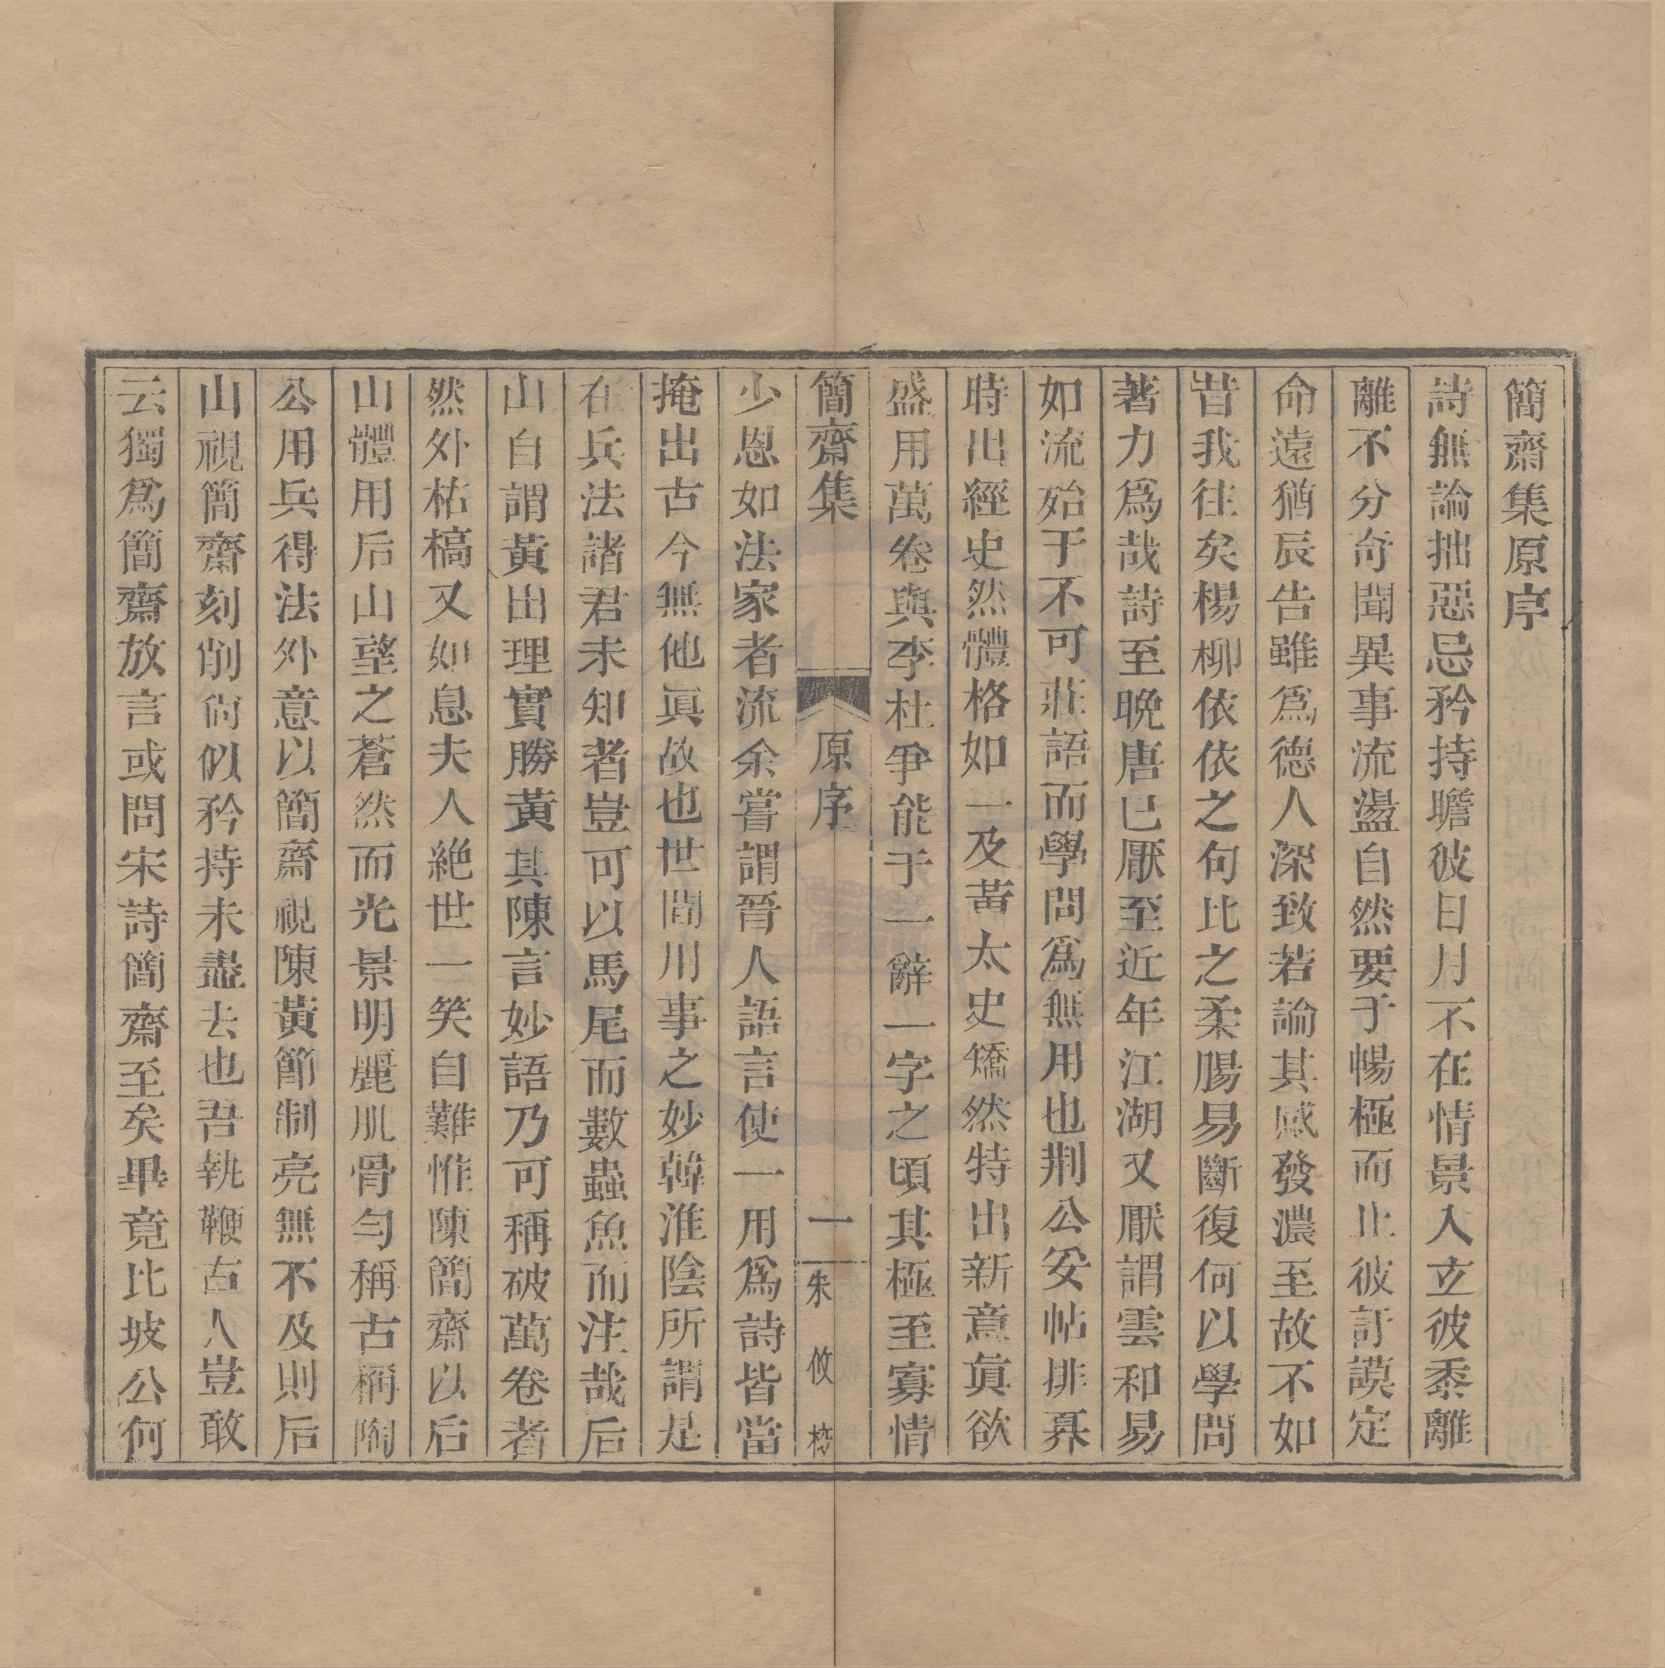 簡齋集原序
詩無論拙惡忌矜持瞻彼日月不在情景入立彼黍離
離不分奇聞異事流盪自然要于暢極而止彼訏謨定
命遠猶辰告雖爲德人深致若論其感發濃至故不如
昔我往矣楊柳依依之句比之柔腸易斷復何以學問
著力爲哉詩至晚唐已厭至近年江湖又厭謂雲和易
如流殆于不可莊語而學問爲無用也荆公妥帖排奡
時出經史然體格如一及黃太史矯然特出新意眞欲
盛用萬卷與李杜爭能于一辭一字之頃其極至寡情
簡齋集 原序 一 朱攸校
少恩如法家者流余嘗謂晉人語言使一用爲詩皆當
掩出古今無他眞故也世間用事之妙韓淮陰所謂是
在兵法諸君未知者豈可以馬尾而數蟲魚而注哉后
山自謂黃出理實勝黃其陳言妙語乃可稱破萬卷者
然外枯槁又如息夫人絶世一笑自難惟陳簡齋以后
山體用后山望之蒼然而光景明麗肌骨勻稱古稱陶
公用兵得法外意以簡齋視陳黃節制亮無不及則后
山視簡齋刻削尙似矜持未盡去也吾執鞭古人豈敢
云獨爲簡齋放言或問宋詩簡齋至矣畢竟比坡公何